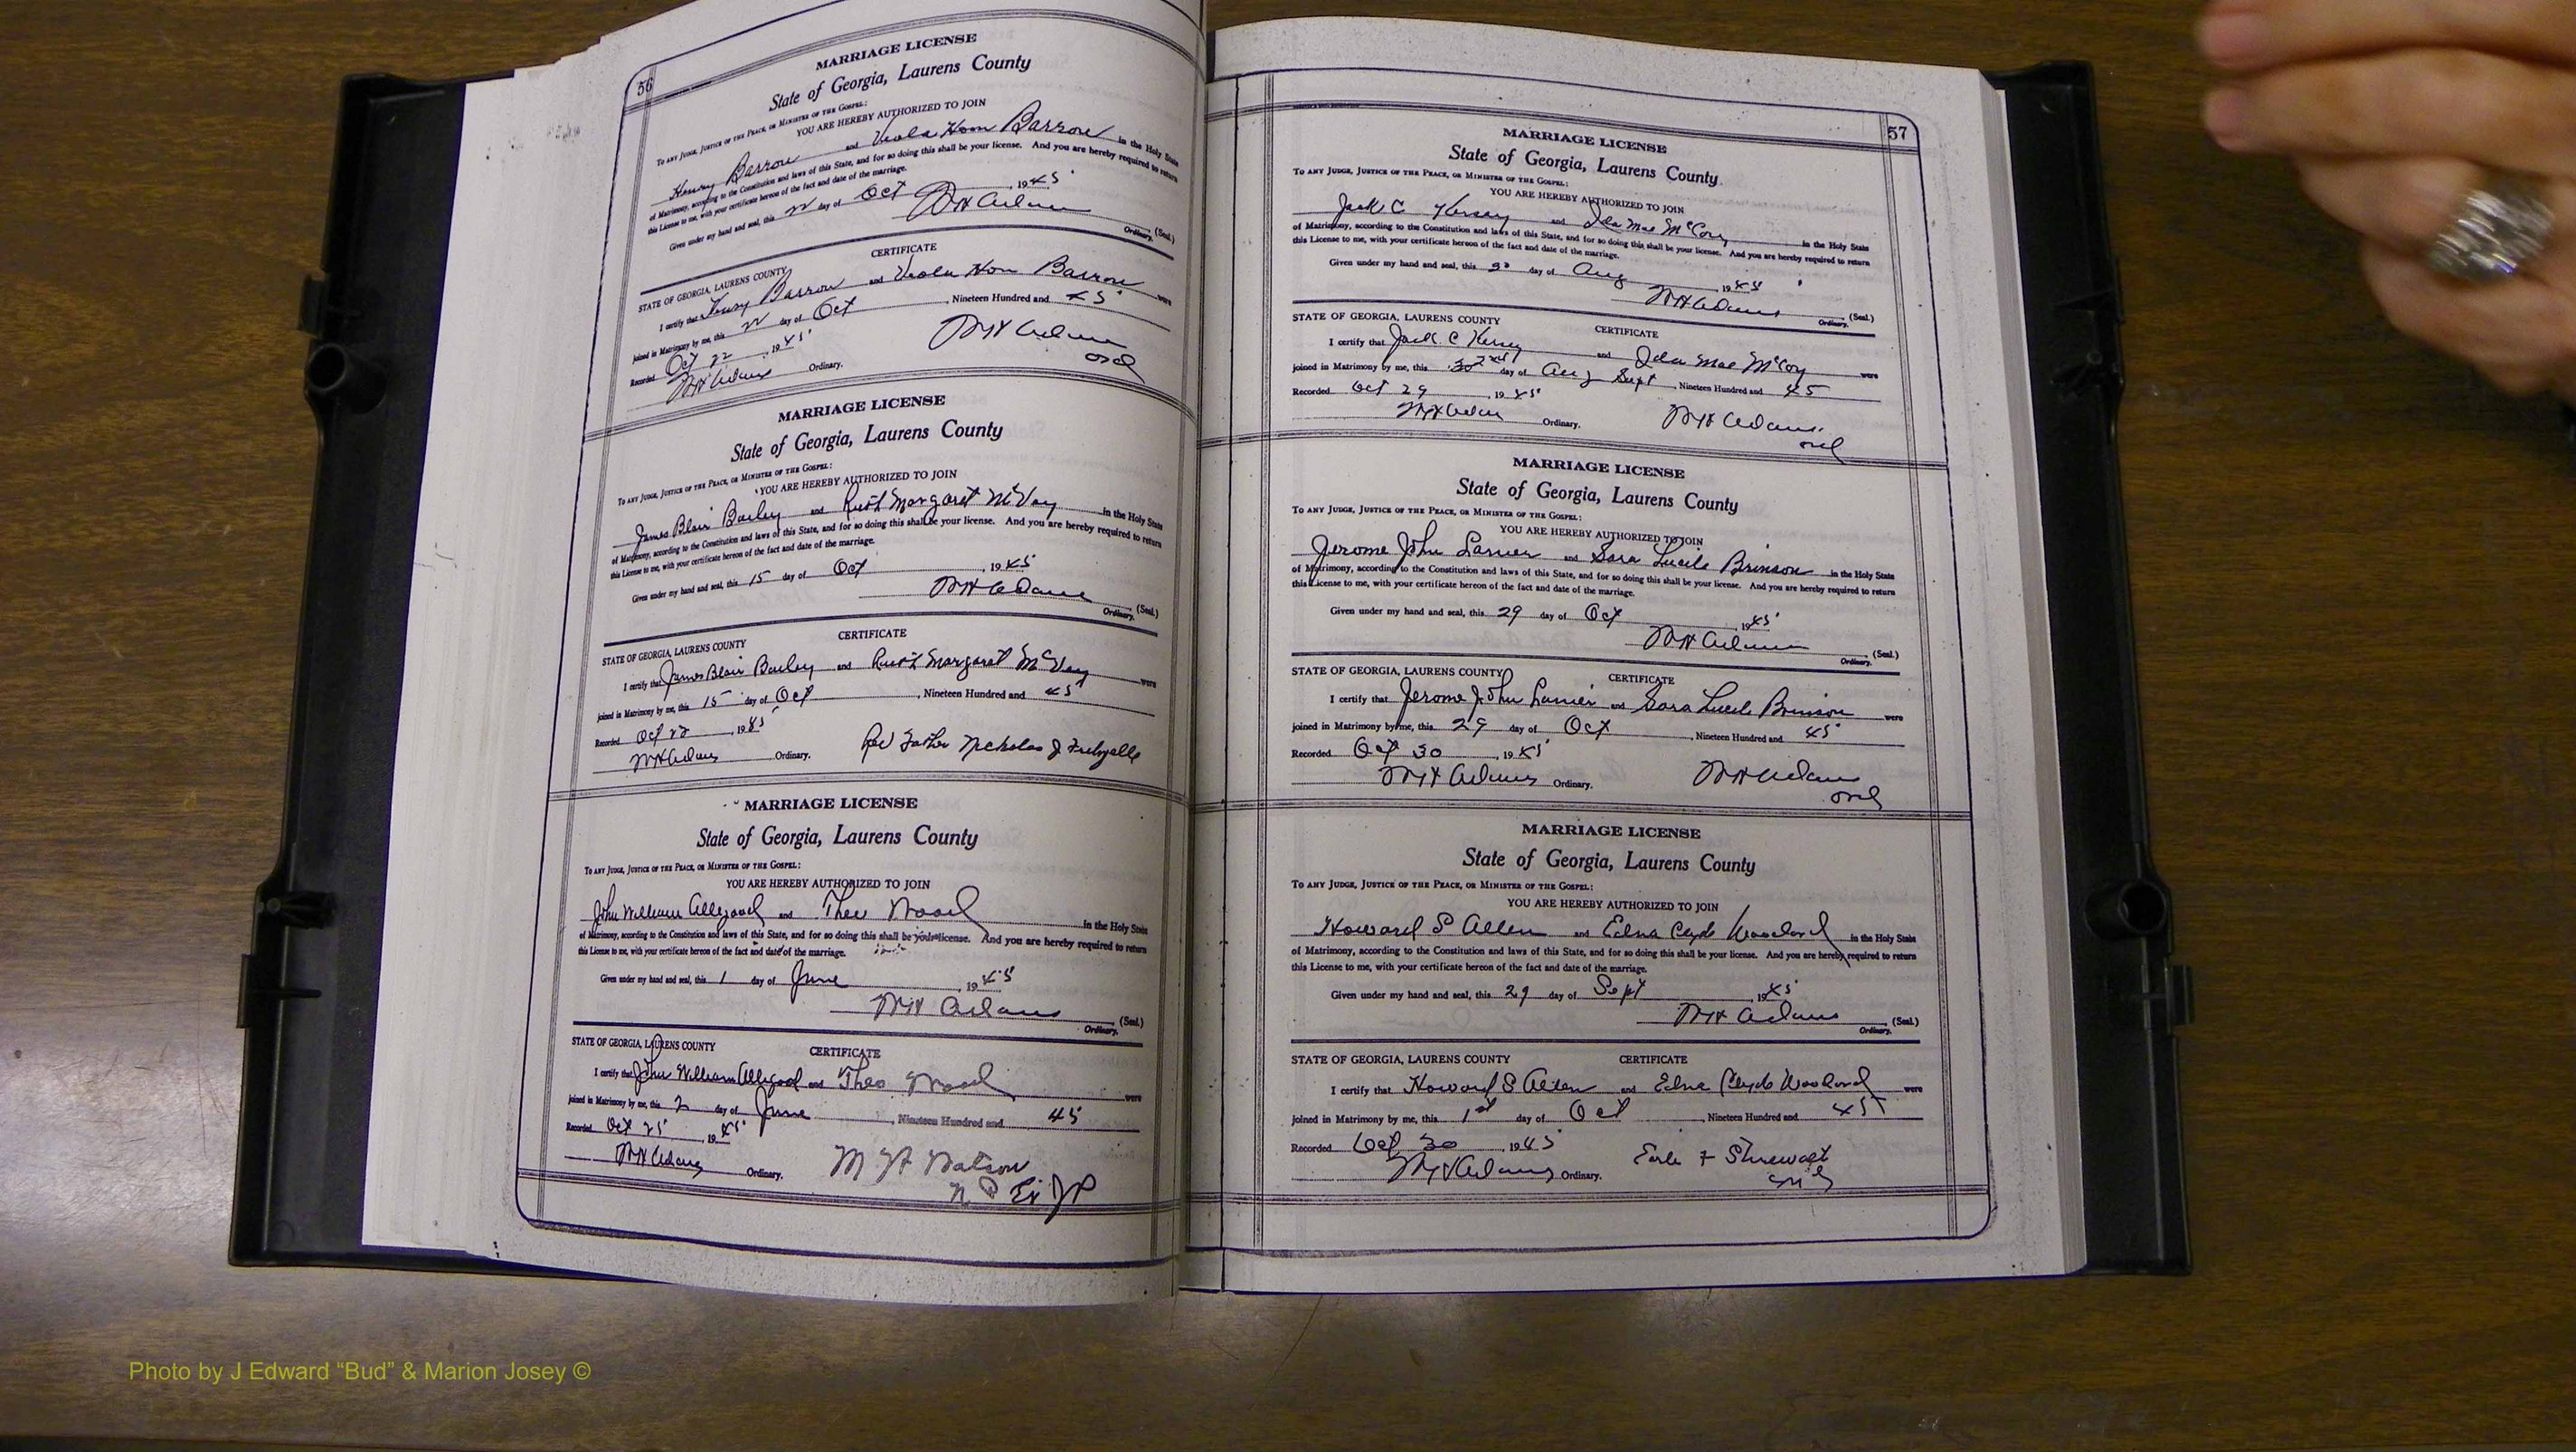 56
MARRIAGE LICENSE
State of Georgia, Laurens County
To any Judge, Justice of the Peace, or Minister of the Gospel:
YOU ARE HEREBY AUTHORIZED TO JOIN
Henry Barron and Viola Horn Barron in the Holy State
of Matrimony, according to the Constitution and laws of this State, and for so doing this shall be your license. And you are hereby required to return
this License to me, with your certificate hereon of the fact and date of the marriage.
Given under my hand and seal, this 22 day of Oct 1945
WH Adams (Seal.)
Ordinary.
CERTIFICATE
STATE OF GEORGIA, LAURENS COUNTY
I certify that Henry Barron and Viola Horn Barron were
joined in Matrimony by me, this 22 day of Oct, Nineteen Hundred and 45
Recorded Oct 22, 1945
WH Adams Ordinary.
WH Adams
ord
MARRIAGE LICENSE
State of Georgia, Laurens County
To any Judge, Justice of the Peace, or Minister of the Gospel:
YOU ARE HEREBY AUTHORIZED TO JOIN
James Blair Bailey and Ruth Margaret McVay in the Holy State
of Matrimony, according to the Constitution and laws of this State, and for so doing this shall be your license. And you are hereby required to return
this License to me, with your certificate hereon of the fact and date of the marriage.
Given under my hand and seal, this 15 day of Oct, 1945
WH Adams (Seal.)
Ordinary.
CERTIFICATE
STATE OF GEORGIA, LAURENS COUNTY
I certify that James Blair Bailey and Ruth Margaret McVay were
joined in Matrimony by me, this 15 day of Oct, Nineteen Hundred and 45
Recorded Oct 22, 1945
WH Adams Ordinary.
Rev Father Nicholas J
MARRIAGE LICENSE
State of Georgia, Laurens County
To any Judge, Justice of the Peace, or Minister of the Gospel:
YOU ARE HEREBY AUTHORIZED TO JOIN
John William Allgood and Theo Wood in the Holy State
of Matrimony, according to the Constitution and laws of this State, and for so doing this shall be your license. And you are hereby required to return
this License to me, with your certificate hereon of the fact and date of the marriage.
Given under my hand and seal, this 1 day of June, 1945
WH Adams (Seal.)
Ordinary.
STATE OF GEORGIA, LAURENS COUNTY CERTIFICATE
I certify that John William Allgood and Theo Wood were
joined in Matrimony by me, this 2 day of June, Nineteen Hundred and 45
Recorded Oct 25, 1945
WH Adams Ordinary.
Watson
N P Ex JP
57
MARRIAGE LICENSE
State of Georgia, Laurens County
To any Judge, Justice of the Peace, or Minister of the Gospel:
YOU ARE HEREBY AUTHORIZED TO JOIN
Jack C Kersey and Ida Mae McCoy in the Holy State
of Matrimony, according to the Constitution and laws of this State, and for so doing this shall be your license. And you are hereby required to return
this License to me, with your certificate hereon of the fact and date of the marriage.
Given under my hand and seal, this 30 day of Aug, 1945
WH Adams (Seal.)
Ordinary.
STATE OF GEORGIA, LAURENS COUNTY CERTIFICATE
I certify that Jack C Kersey and Ida Mae McCoy were
joined in Matrimony by me, this day of Aug Sept, Nineteen Hundred and 45
Recorded Oct 29, 1945
WH Adams Ordinary.
WH Adams
ord
MARRIAGE LICENSE
State of Georgia, Laurens County
To any Judge, Justice of the Peace, or Minister of the Gospel:
YOU ARE HEREBY AUTHORIZED TO JOIN
Jerome John Lanier and Sara Lucile Brinson in the Holy State
of Matrimony, according to the Constitution and laws of this State, and for so doing this shall be your license. And you are hereby required to return
this License to me, with your certificate hereon of the fact and date of the marriage.
Given under my hand and seal, this 29 day of Oct, 1945
WH Adams (Seal.)
Ordinary.
STATE OF GEORGIA, LAURENS COUNTY CERTIFICATE
I certify that Jerome John Lanier and Sara Lucile Brinson were
joined in Matrimony by me, this 29 day of Oct, Nineteen Hundred and 45
Recorded Oct 30, 1945
WH Adams Ordinary.
WH Adams
ord
MARRIAGE LICENSE
State of Georgia, Laurens County
To any Judge, Justice of the Peace, or Minister of the Gospel:
YOU ARE HEREBY AUTHORIZED TO JOIN
Howard S Allen and Edna Clyde Woodard in the Holy State
of Matrimony, according to the Constitution and laws of this State, and for so doing this shall be your license. And you are hereby required to return
this License to me, with your certificate hereon of the fact and date of the marriage.
Given under my hand and seal, this 29 day of Sept, 1945
WH Adams (Seal.)
Ordinary.
STATE OF GEORGIA, LAURENS COUNTY CERTIFICATE
I certify that Howard S Allen and Edna Clyde Woodard were
joined in Matrimony by me, this 1st day of Oct, Nineteen Hundred and 45
Recorded Oct 30, 1945
WH Adams Ordinary.
Earle F Stirewalt
Photo by J Edward “Bud” & Marion Josey ©